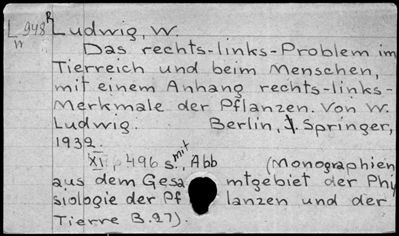 L 948 R Ludwig, W.
n
Das rechts-links-Problem im
Tierreich und beim Menschen,
mit einem Anhang rechts-links-
Merkmale der Pflanzen. Von W.
Ludwig. Berlin, J. Springer,
1932.
XI, 496 s. mit Abb (Monographien
aus dem Gesa mtgebiet der Phy
siologie der Pf lanzen und der
Tierre B. 27).